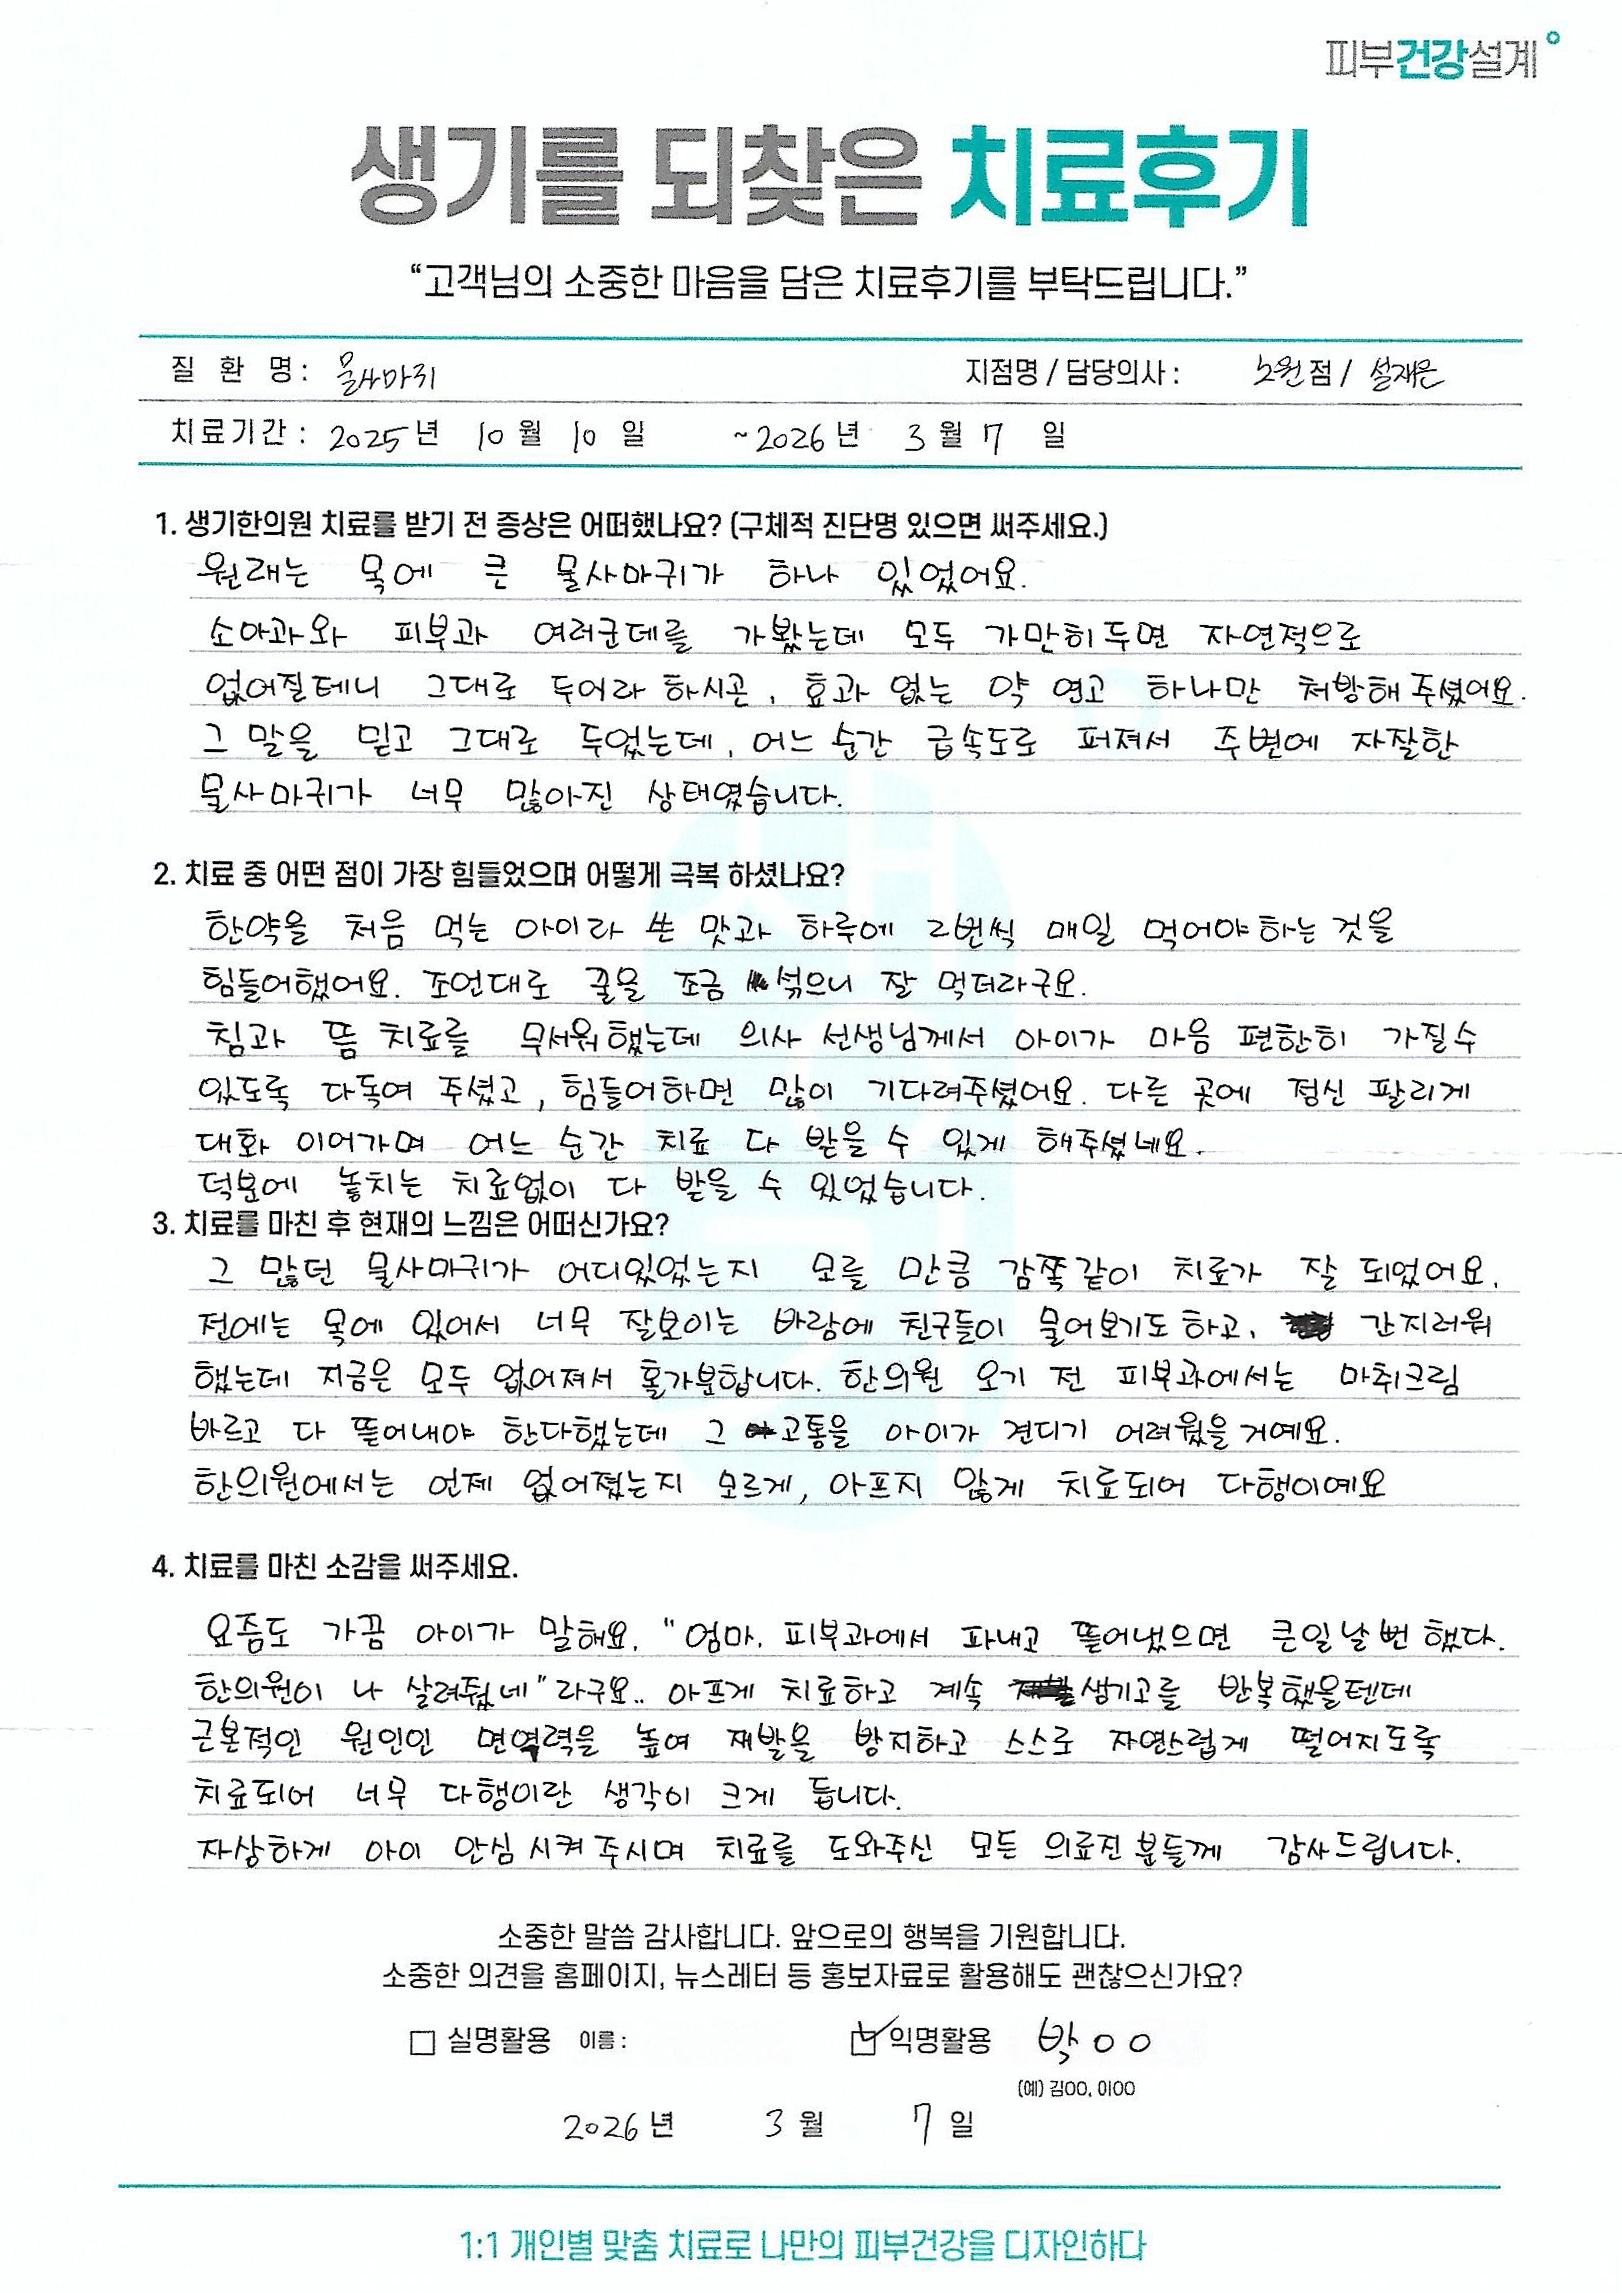 피부건강설계
생기를 되찾은 치료후기
“고객님의 소중한 마음을 담은 치료후기를 부탁드립니다.”
질 환 명 : 물사마귀 지점명 / 담당의사 : 노원 점 / 설재은
치료기간 : 2025 년 10 월 10 일 ~ 2026 년 3 월 7 일
1. 생기한의원 치료를 받기 전 증상은 어떠했나요? (구체적 진단명 있으면 써주세요.)
원래는 목에 큰 물사마귀가 하나 있었어요.
소아과와 피부과 여러군데를 가봤는데 모두 가만히 두면 자연적으로
없어질테니 그대로 두어라 하시곤, 효과 없는 약 연고 하나만 처방해 주셨어요.
그 말을 믿고 그대로 두었는데, 어느 순간 급속도로 퍼져서 주변에 자잘한
물사마귀가 너무 많아진 상태였습니다.
2. 치료 중 어떤 점이 가장 힘들었으며 어떻게 극복 하셨나요?
한약을 처음 먹는 아이라 쓴 맛과 하루에 2번씩 매일 먹어야하는 것을
힘들어했어요. 조언대로 꿀을 조금 섞으니 잘 먹더라구요.
침과 뜸 치료를 무서워했는데 의사 선생님께서 아이가 마음 편한히 가질수
있도록 다독여 주셨고, 힘들어하면 많이 기다려주셨어요. 다른 곳에 정신 팔리게
대화 이어가며 어느 순간 치료 다 받을 수 있게 해주셨네요.
덕분에 놓치는 치료없이 다 받을 수 있었습니다.
3. 치료를 마친 후 현재의 느낌은 어떠신가요?
그 많던 물사마귀가 어디있었는지 모를 만큼 감쪽같이 치료가 잘 되었어요.
전에는 목에 있어서 너무 잘보이는 바람에 친구들이 물어보기도 하고, 간지러워
했는데 지금은 모두 없어져서 홀가분합니다. 한의원 오기 전 피부과에서는 마취크림
바르고 다 뜯어내야 한다했는데 그 고통을 아이가 견디기 어려웠을거예요.
한의원에서는 언제 없어졌는지 모르게, 아프지 않게 치료되어 다행이예요
4. 치료를 마친 소감을 써주세요.
요즘도 가끔 아이가 말해요. "엄마. 피부과에서 파내고 뜯어냈으면 큰일날뻔 했다.
한의원이 나 살려줬네" 라구요.. 아프게 치료하고 계속 생기고를 반복했을텐데
근본적인 원인인 면역력을 높여 재발을 방지하고 스스로 자연스럽게 떨어지도록
치료되어 너무 다행이란 생각이 크게 듭니다.
자상하게 아이 안심시켜주시며 치료를 도와주신 모든 의료진분들께 감사드립니다.
소중한 말씀 감사합니다. 앞으로의 행복을 기원합니다.
소중한 의견을 홈페이지, 뉴스레터 등 홍보자료로 활용해도 괜찮으신가요?
실명활용 이름 : 익명활용 박○○
(예) 김○○, 이○○
2026 년 3 월 7 일
1:1 개인별 맞춤 치료로 나만의 피부건강을 디자인하다